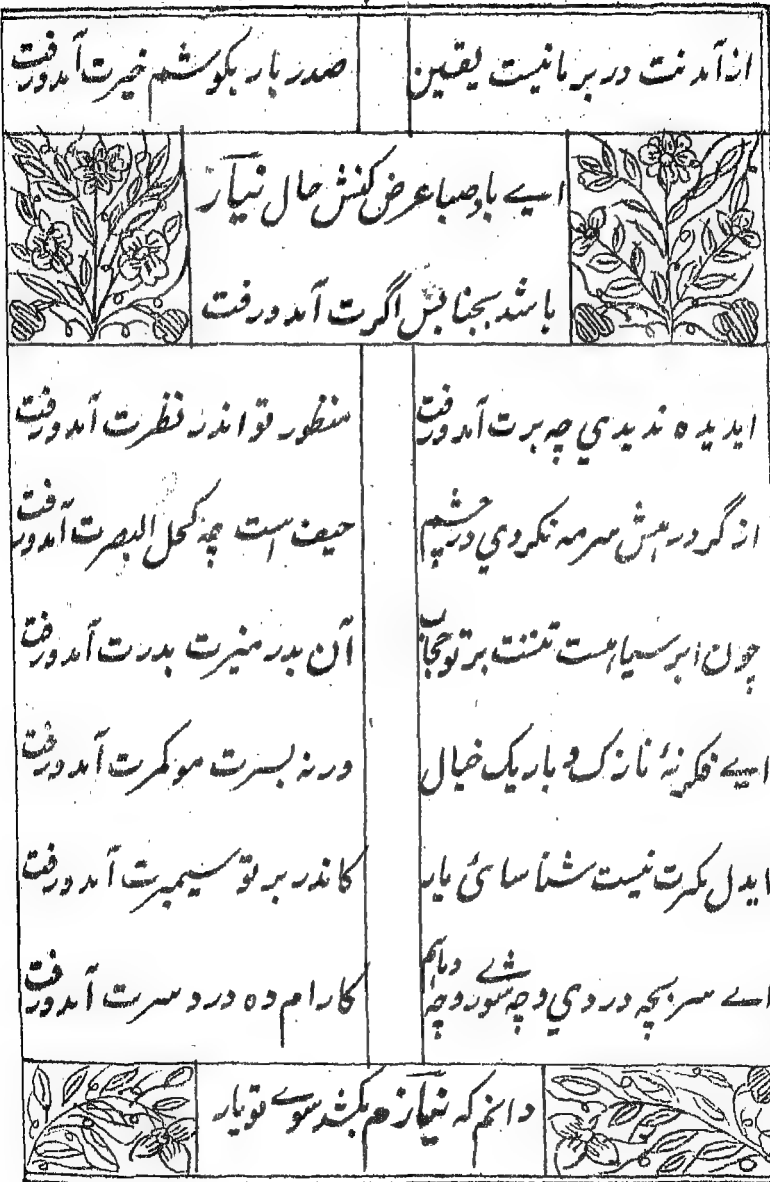 از آمدنت در بر ما نیست یقین صد بار بگوشم خبرت آمد و رفت
ایے باد صبا عرض کنش حال نیآز
باشد بجنابش اگرت آمد و رفت
ایدیده ندیدي چه برت آمد و رفت منظور تو اندر نظرت آمد و رفت
از گرد رهش سرمه نکردي در چشم حیف است چه کحل البصرت آمد و رفت
چون ابر سیاهست تنت بر تو حجاب آن بدر منیرت بدرت آمد و رفت
ایے فکر نۂ نازک و باریک خیال ورنه بسرت مو کمرت آمد و رفت
ایدل مگرت نیست شناسائ یار کاندر بر تو سیمبرت آمد و رفت
اے سر بچه دردي و چه شورے و چه کارام ده درد سرت آمد و رفت
دانم که نیآزم بکشد سوے تو یار